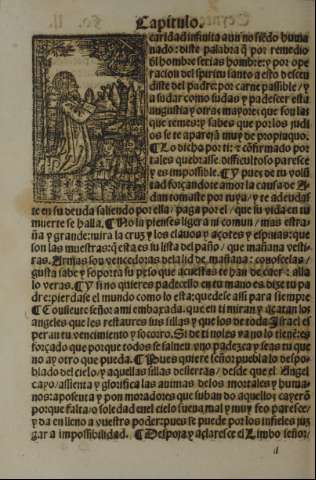 Capitulo.
caridad infinita aun no siēdo huma
nado: diste palabra q̄ por remedio
ðl hombre serias hombre: y por ope
racion del spiritu santo a esto descen
diste del padre: por carne passible / y
a sudar como sudas y padescer esta
angustia y otras mayores que son las
que temes: y sabes que por los judi
os se te apareja muy de propinquo.
¶ Lo dicho por ti: z cōfirmado por
tales quebrasse. difficultoso paresce
y es impossible. ¶ Y pues de tu volū
tad forçandote amor la causa de A
dan tomaste por tuya / y te adeudas
te en su deuda saliendo por ella / paga por el / que su vida en tu
muerte se halla. ¶ No la pienses ligera ni comun / mas estra
ña y grande: mira la cruz y los clauos y açotes y espinas: que
son las muestras: q̄ esta es su lista del paño / que mañana vesti
ras. Armas son vencedoras de la lid de mañana: conoscelas /
gusta sabe y soporta su peso que acuestas te han de caer: alla
lo veras. ¶ Y si no quieres padecello en tu mano es dize tu pa
dre: pierdase el mundo como lo esta: quedese assi para siempre
¶ Touiesse señor a mi embaxada. que en ti miran y acatan los
angeles que les restaures sus sillas y que los de toda Israel es
peran tu vencimiento y socorro. Si de ti no les va no lo tienē: es
forçado que porque todos te falten. vno padezca y seas tu que
no ay otro que pueda. ¶ Pues quiere señor puebla lo despo
blado del cielo / y aquellas sillas desiertas / desde que el Angel
cayo / assienta y glorifica las animas delos mortales y huma
nos: aposenta y pon moradores que suban do aquellos cayerō
porque falta / o soledad en el cielo suena mal y muy feo paresce /
y da en lleno a vuestro poder: pues se puede por los infieles juz
gar a impossibilidad. ¶ Despoja y aclaresce el Limbo señor /